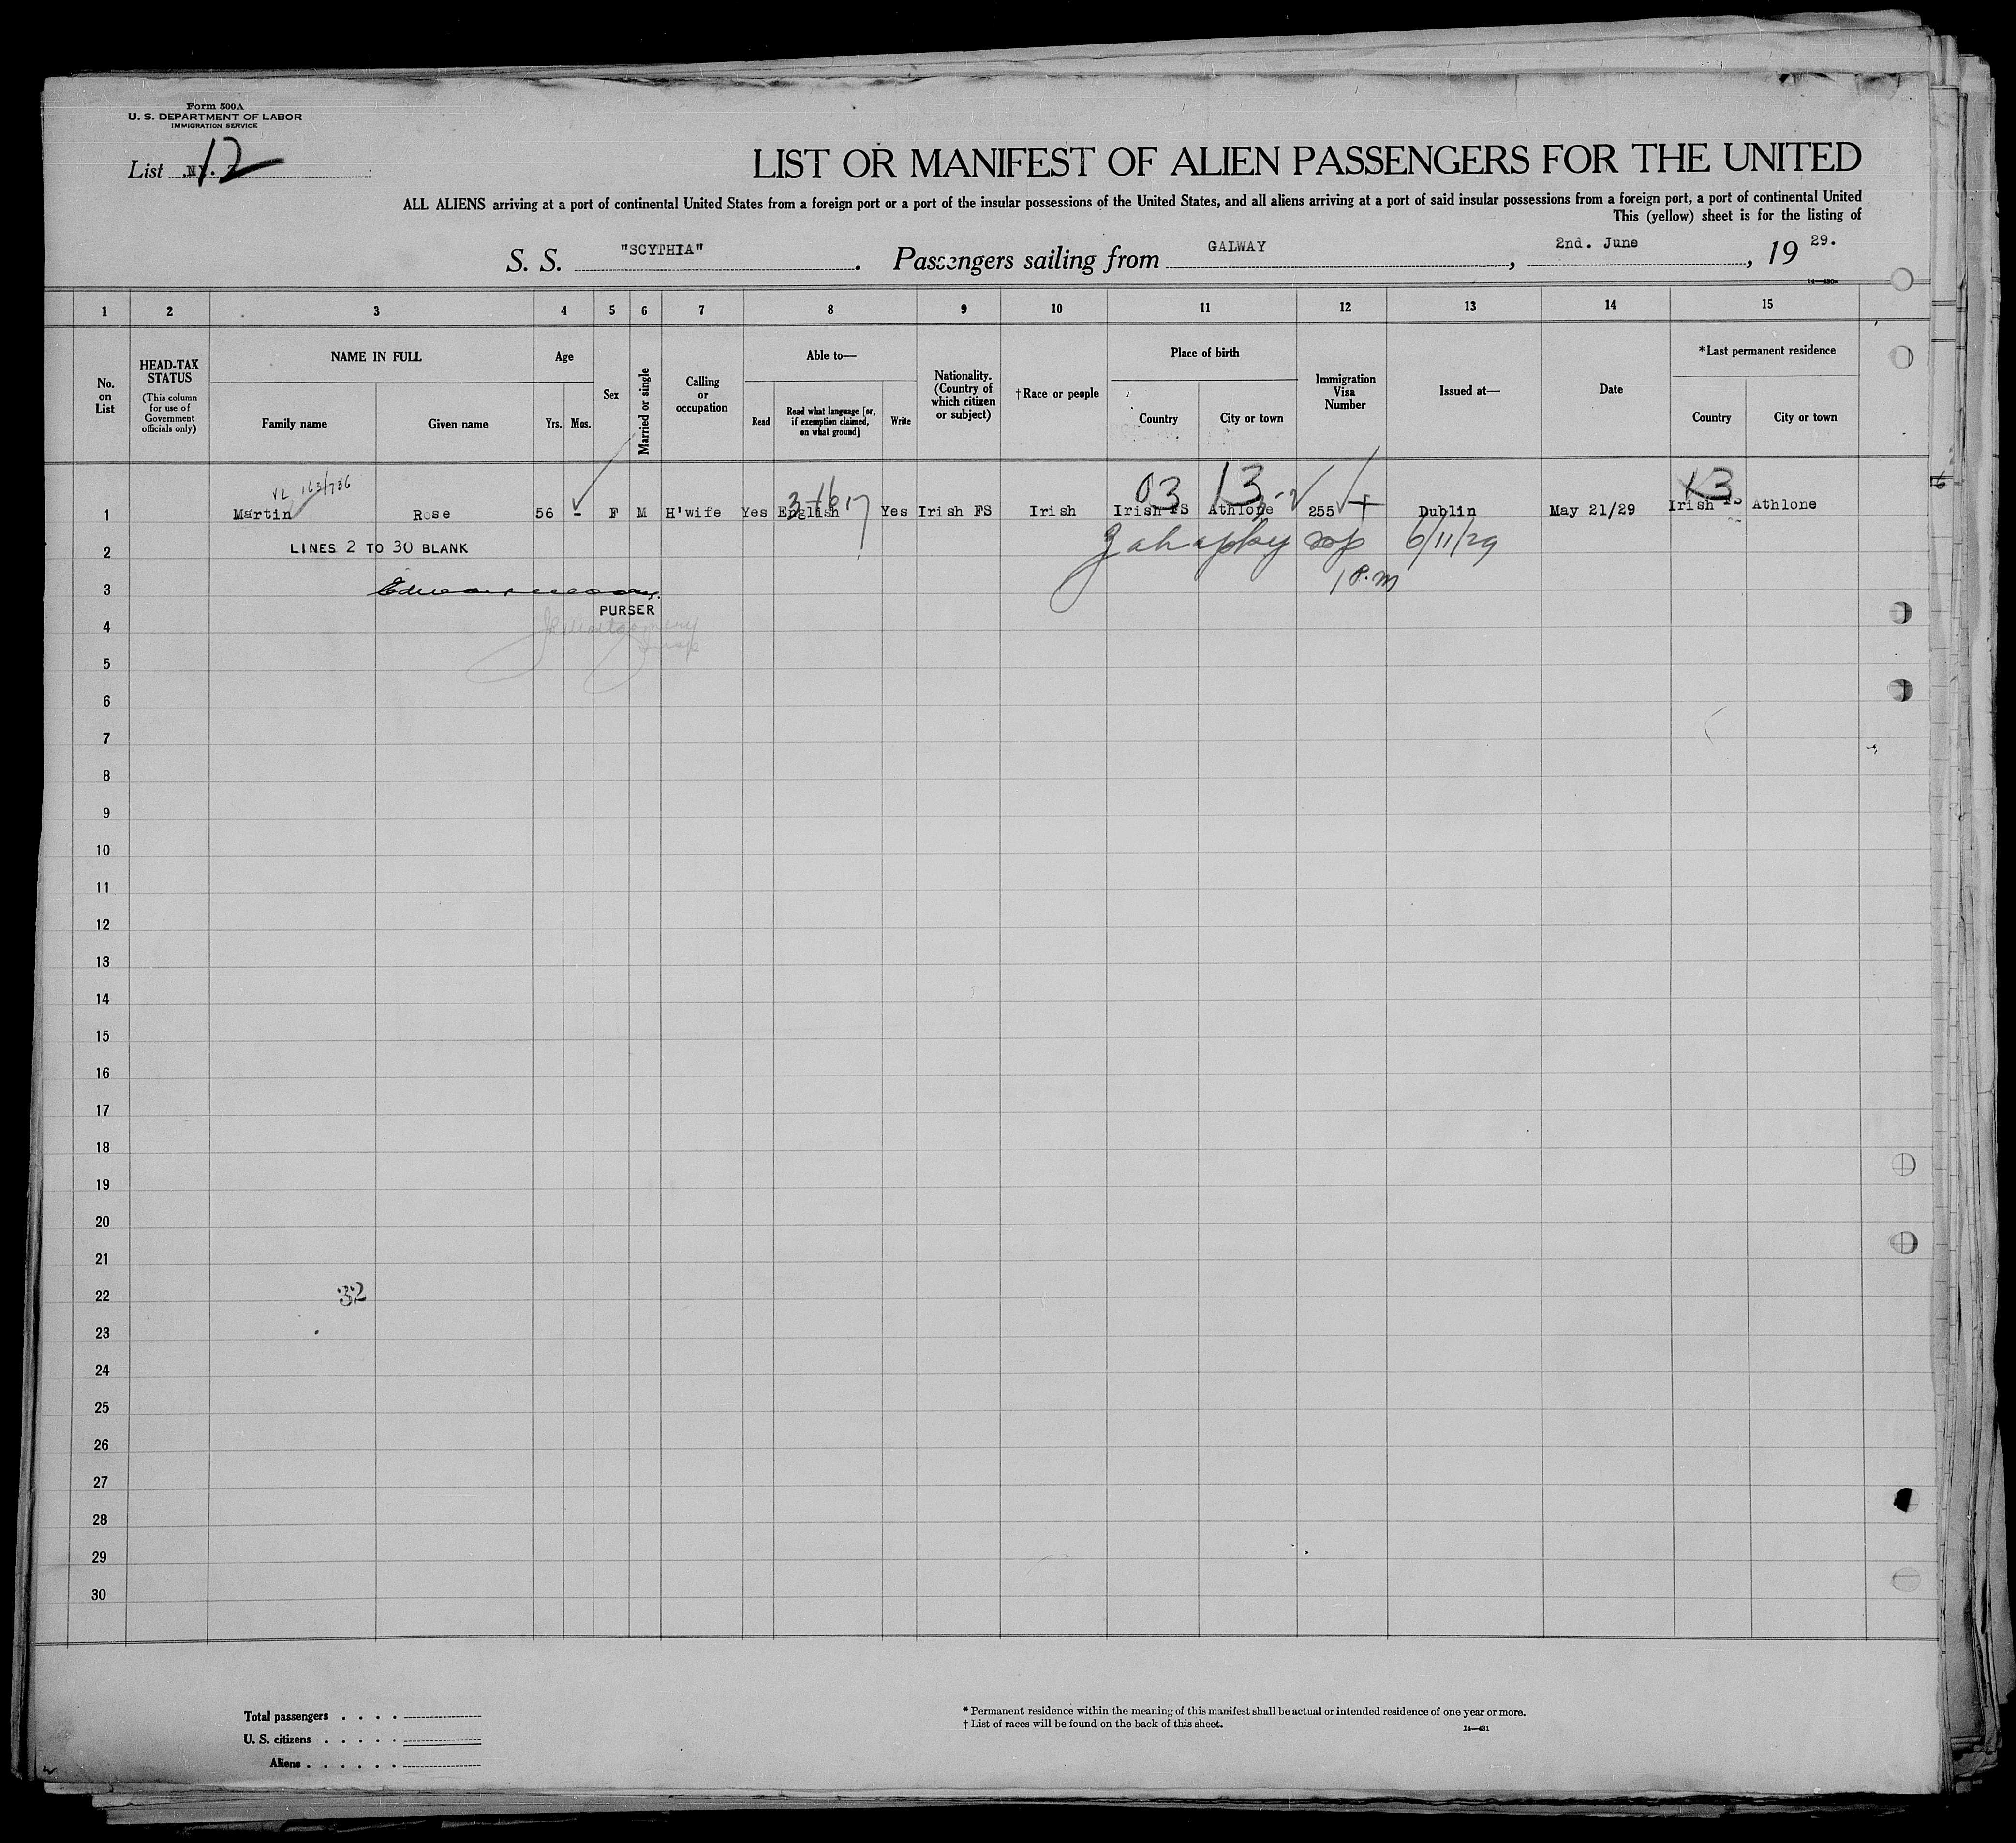 Form 500A
U. S. DEPARTMENT OF LABOR
IMMIGRATION SERVICE
List 12
LIST OR MANIFEST OF ALIEN PASSENGERS FOR THE UNITED
ALL ALIENS arriving at a port of continental United States from a foreign port or a port of the insular possessions of the United States, and all aliens arriving at a port of said insular possessions from a foreign port, a port of continental United
This (yellow) sheet is for the listing of
S. S. "SCYTHIA". Passengers sailing from GALWAY, 2nd. June, 19 29.
1 2 3 4 5 6 7 8 9 10 11 12 13 14 15
No. on List
HEAD-TAX STATUS
(This column for use of Government officials only)
NAME IN FULL
Family name Given name
Age
Yrs. Mos.
Sex
Married or single
Calling or occupation
Able to—
Read
Read what language [or, if exemption claimed, on what ground]
Write
Nationality. (Country of which citizen or subject)
†Race or people
Place of birth
Country City or town
Immigration Visa Number
Issued at—
Date
*Last permanent residence
Country City or town
VL 163/736
3-16 17 03 13 13
1 Martin Rose 56 - F M H'wife Yes English Yes Irish FS Irish Irish FS Athlone 255 Dublin May 21/29 Irish FS Athlone
2 LINES 2 TO 30 BLANK 6/11/29
1 P.M
3
PURSER
4
5
6
7
8
9
10
11
12
13
14
15
16
17
18
19
20
21
22 32
23
24
25
26
27
28
29
30
Total passengers . . . .
U. S. citizens . . . . .
Aliens . . . . . .
* Permanent residence within the meaning of this manifest shall be actual or intended residence of one year or more.
† List of races will be found on the back of this sheet.
14—431